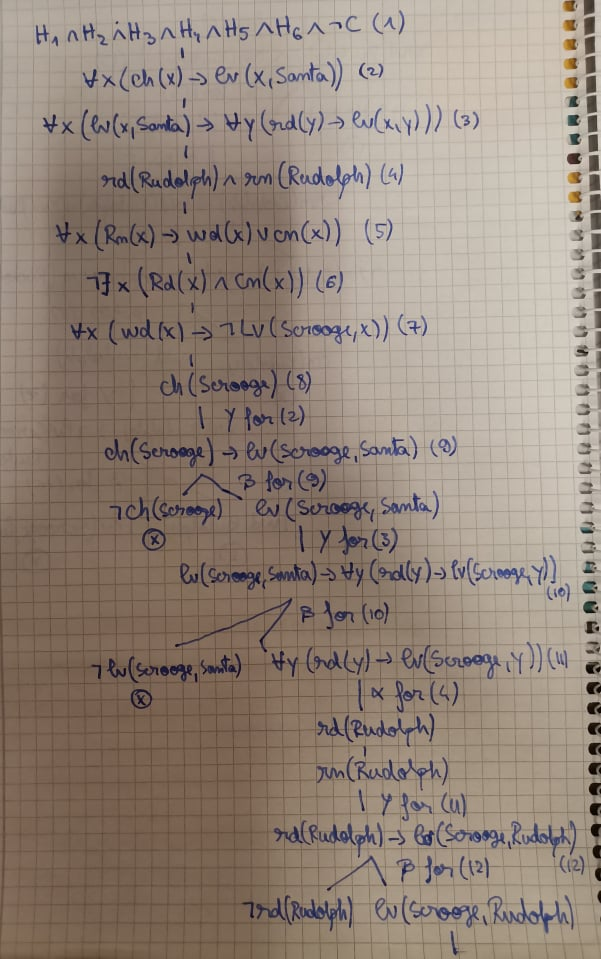 H₁ ∧ H₂ ∧ H₃ ∧ H₄ ∧ H₅ ∧ H₆ ∧ ¬C (1)
∀x(ch(x) → lv(x,Santa)) (2)
∀x(lv(x,Santa) → ∀y(rd(y) → lv(x,y))) (3)
rd(Rudolph) ∧ rn(Rudolph) (4)
∀x(Rn(x) → wd(x) ∨ cn(x)) (5)
¬∃x(Rd(x) ∧ Cn(x)) (6)
∀x(wd(x) → ¬Lv(Scrooge,x)) (7)
ch(Scrooge) (8)
γ for (2)
ch(Scrooge) → lv(Scrooge,Santa) (9)
β for (9)
¬ch(Scrooge) lv(Scrooge,Santa)
⊗ γ for (3)
lv(Scrooge,Santa) → ∀y(rd(y) → lv(Scrooge,y))
(10)
β for (10)
¬lv(Scrooge,Santa) ∀y(rd(y) → lv(Scrooge,y)) (11)
⊗ α for (4)
rd(Rudolph)
rn(Rudolph)
γ for (11)
rd(Rudolph) → lv(Scrooge,Rudolph)
β for (12) (12)
¬rd(Rudolph) lv(Scrooge,Rudolph)